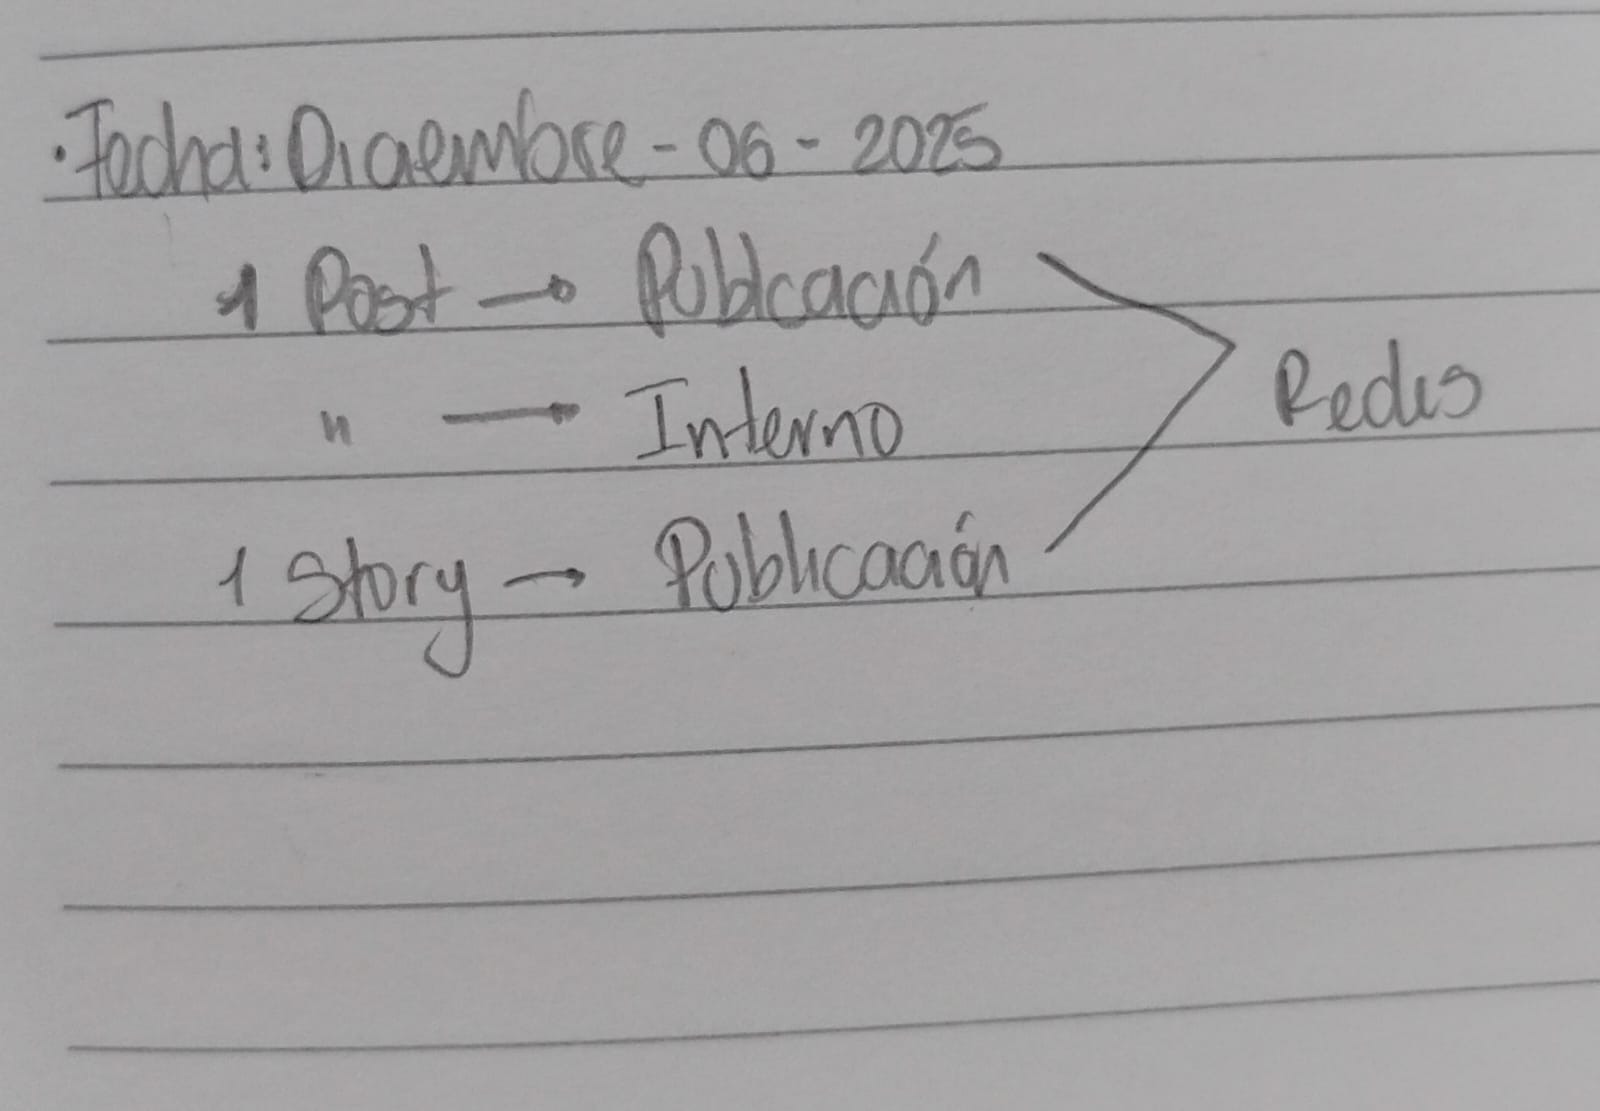 · Fecha: Diciembre - 06 - 2025
1 Post → Publicación
" → Interno
Redes
1 Story → Publicación